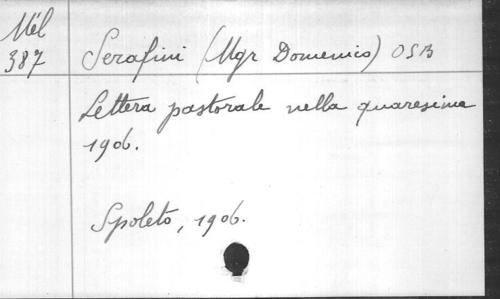 Mél
387
Serafini (Mgr Domenico) OSB
Lettera pastorale nella quaresima
1906.
Spoleto, 1906.